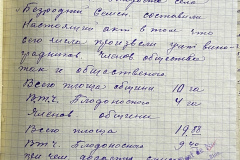 Безродний Семен составили
Настоящий акт в том что
сего числа произвели учет вино-
градников членов общества
так и общественно
Всего площа общини 10 га
В т.ч. Плодоносного 4 га
Членов общини
Всего площа 19,88
В т.ч. Плодоносного 9,40